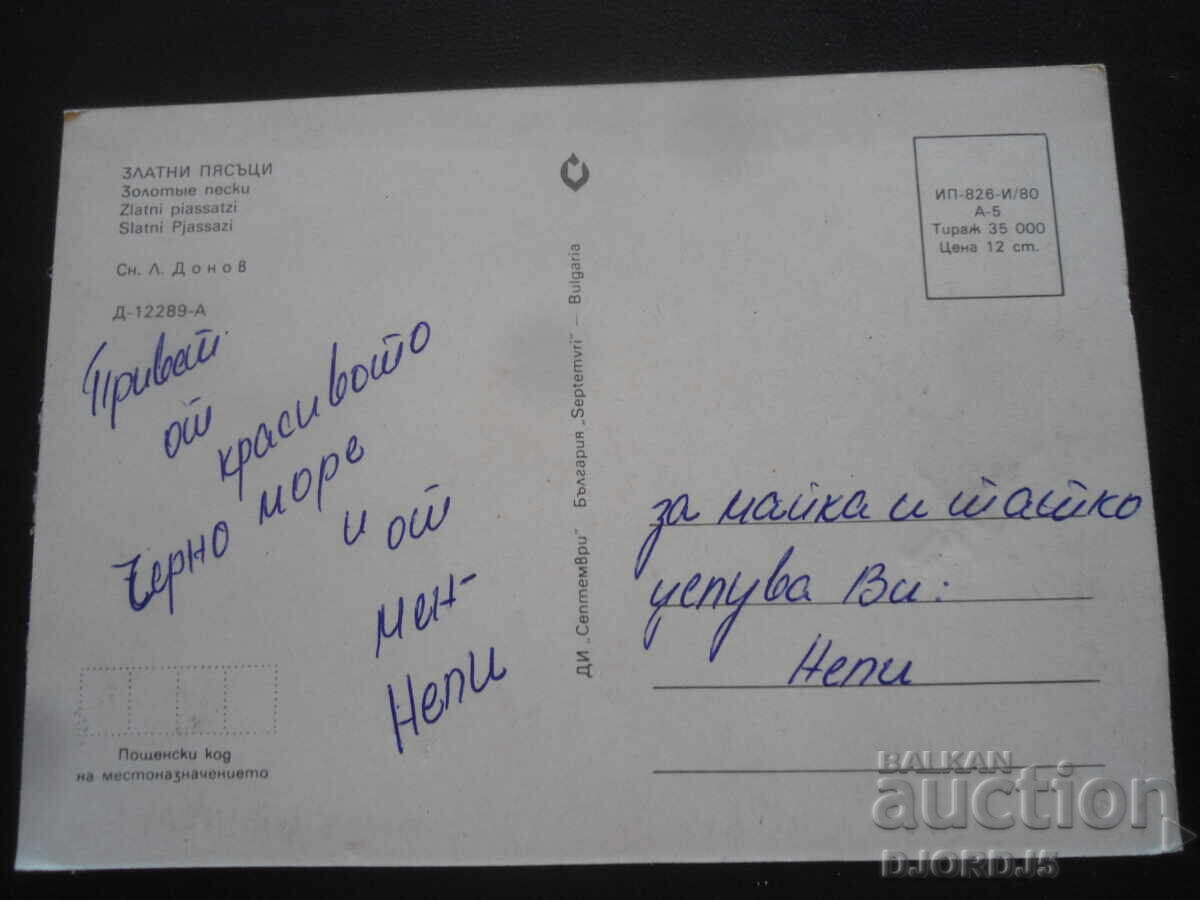 ЗЛАТНИ ПЯСЪЦИ
Золотые пески
Zlatni piassatzi
Slatni Pjassazi
Сн. Л. Донов
Д-12289-А
Привет
от
красивото
Черно море
и от
мен-
Непи
Пощенски код
на местоназначението
ДИ „Септември" България „Septemvri" — Bulgaria
ИП-826-И/80
А-5
Тираж 35 000
Цена 12 ст.
за майка и татко
целува Ви:
Непи
BALKAN
auction
DJORDJ5